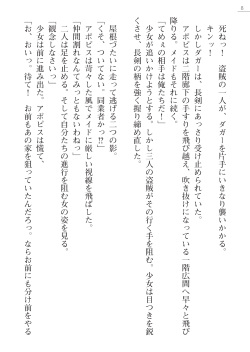 8
死ねっ！　盗賊の一人が、ダガーを片手にいきなり襲いかかる。
キンッ！
しかしダガーは、長剣にあっさり受け止められていた。
アポピスは二階廊下の手すりを飛び越え、吹き抜けになっている一階広間へ早々と飛び
降りる。メイドもそれに続く。
「てめぇの相手は俺たちだ！」
少女が追いかけようとする。しかし三人の盗賊がその行く手を阻む。少女は目つきを鋭
くさせ、長剣を強く握り締め直した。
屋根づたいに走って逃げる二つの影。
「くそ、ついてない。同業者かっ‼」
アポピスは苛々した風でメイドに厳しい視線を飛ばした。
「仲間割れなんてみっともないわねっ」
二人は足を止める。そして自分たちの進行を阻む女の姿を見る。
「観念しなさいっ」
少女は前に進み出た。アポピスは慌て、
「お、おいっ、待て！　お前もあの家を狙っていたんだろっ。ならお前にも分け前をやる